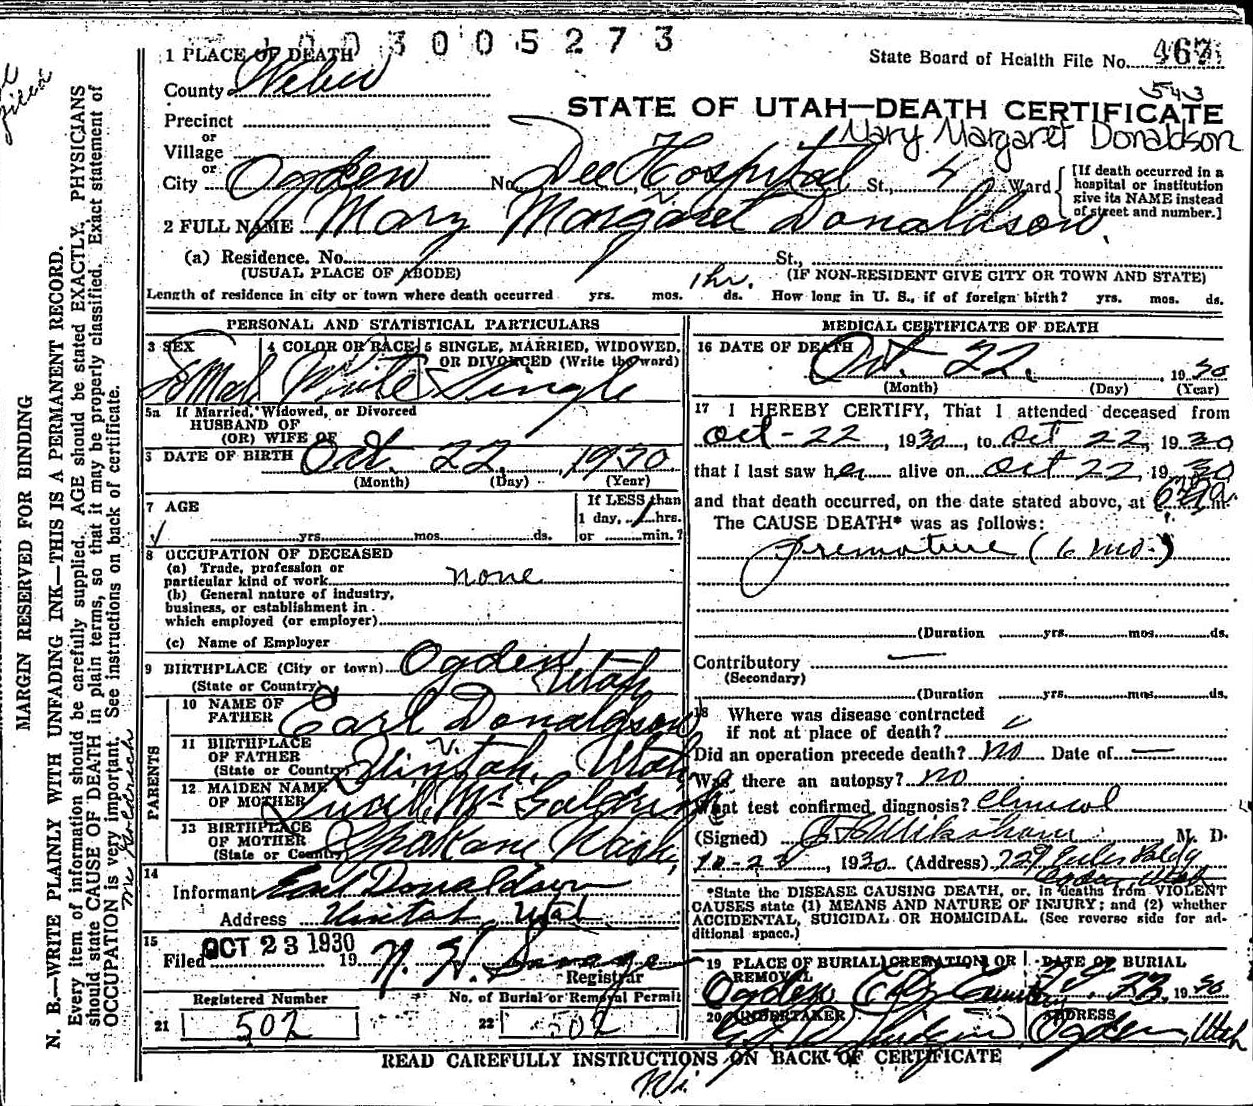 1003005273
1 PLACE OF DEATH
State Board of Health File No. 467
543
County Weber
STATE OF UTAH—DEATH CERTIFICATE
Precinct
Mary Margaret Donaldson
or
Village
or
City Ogden No. Dee Hospital St., 4 Ward
[If death occurred in a
hospital or institution
give its NAME instead
of street and number.]
2 FULL NAME Mary Margaret Donaldson
(a) Residence. No. St.,
(USUAL PLACE OF ABODE) (IF NON-RESIDENT GIVE CITY OR TOWN AND STATE)
Length of residence in city or town where death occurred yrs. mos. 1 hr. ds. How long in U. S., if of foreign birth? yrs. mos. ds.
PERSONAL AND STATISTICAL PARTICULARS
3 SEX 4 COLOR OR RACE 5 SINGLE, MARRIED, WIDOWED,
OR DIVORCED (Write the word)
White Single
5a If Married, Widowed, or Divorced
HUSBAND OF
(OR) WIFE OF
6 DATE OF BIRTH Oct. 22, 1930
(Month) (Day) (Year)
7 AGE
If LESS than
1 day, 1 hrs.
yrs. mos. ds. or min.?
8 OCCUPATION OF DECEASED
(a) Trade, profession or
particular kind of work none
(b) General nature of industry,
business, or establishment in
which employed (or employer)
(c) Name of Employer
9 BIRTHPLACE (City or town) Ogden
(State or Country) Utah
PARENTS
10 NAME OF
FATHER Earl Donaldson
11 BIRTHPLACE
OF FATHER
(State or Country) Uintah, Utah
12 MAIDEN NAME
OF MOTHER
13 BIRTHPLACE
OF MOTHER
(State or Country) Spokane Wash,
14
Informant Earl Donaldson
Address Uintah, Utah
15
Filed OCT 23 1930 19
Registrar
Registered Number No. of Burial or Removal Permit
21 502 22 502
MEDICAL CERTIFICATE OF DEATH
16 DATE OF DEATH
Oct. 22, 1930
(Month) (Day) (Year)
17 I HEREBY CERTIFY, That I attended deceased from
Oct-22, 1930, to Oct 22, 1930
that I last saw her alive on Oct 22, 1930
and that death occurred, on the date stated above, at m.
The CAUSE DEATH* was as follows:
Premature (6 mo.)
(Duration yrs. mos. ds.
Contributory
(Secondary)
(Duration yrs. mos. ds.
18 Where was disease contracted
if not at place of death?
Did an operation precede death? No Date of
Was there an autopsy? no
What test confirmed diagnosis? Clinical
(Signed) M. D.
10-23, 1930 (Address) Bldg
Ogden Utah
*State the DISEASE CAUSING DEATH, or, in deaths from VIOLENT
CAUSES state (1) MEANS AND NATURE OF INJURY; and (2) whether
ACCIDENTAL, SUICIDAL OR HOMICIDAL. (See reverse side for ad-
ditional space.)
19 PLACE OF BURIAL, CREMATION OR
REMOVAL
DATE OF BURIAL
Ogden City Cemetery 1930
20 UNDERTAKER ADDRESS
Ogden, Utah
READ CAREFULLY INSTRUCTIONS ON BACK OF CERTIFICATE
MARGIN RESERVED FOR BINDING
N. B.—WRITE PLAINLY WITH UNFADING INK—THIS IS A PERMANENT RECORD.
Every item of information should be carefully supplied. AGE should be stated EXACTLY. PHYSICIANS
should state CAUSE OF DEATH in plain terms, so that it may be properly classified. Exact statement of
OCCUPATION is very important. See instructions on back of certificate.